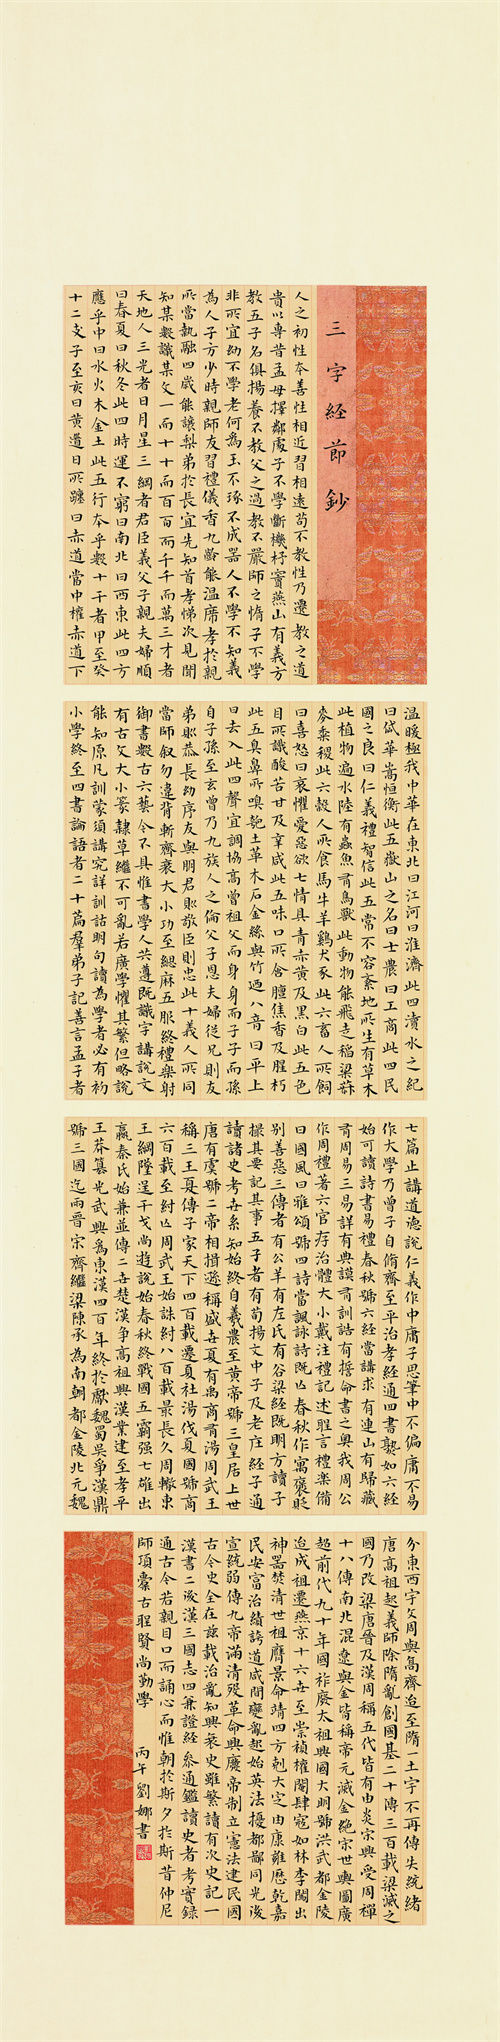 三字經節鈔
人之初性本善性相近習相遠苟不教性乃遷教之道
貴以專昔孟母擇鄰處子不學斷機杼竇燕山有義方
教五子名俱揚養不教父之過教不嚴師之惰子不學
非所宜幼不學老何為玉不琢不成器人不學不知義
為人子方少時親師友習禮儀香九齡能溫席孝於親
所當執融四歲能讓梨弟於長宜先知首孝悌次見聞
知某數識某文一而十十而百百而千千而萬三才者
天地人三光者日月星三綱者君臣義父子親夫婦順
曰春夏曰秋冬此四時運不窮曰南北曰西東此四方
應乎中曰水火木金土此五行本乎數十干者甲至癸
十二支子至亥曰黃道日所躔曰赤道當中權赤道下
溫暖極我中華在東北曰江河曰淮濟此四瀆水之紀
曰岱華嵩恒衡此五嶽山之名曰士農曰工商此四民
國之良曰仁義禮智信此五常不容紊地所生有草木
此植物遍水陸有蟲魚有鳥獸此動物能飛走稻粱菽
麥黍稷此六穀人所食馬牛羊雞犬豕此六畜人所飼
曰喜怒曰哀懼愛惡欲七情具青赤黃及黑白此五色
目所識酸苦甘及辛鹹此五味口所含膻焦香及腥朽
此五臭鼻所嗅匏土革木石金絲與竹迺八音曰平上
曰去入此四聲宜調協高曾祖父而身身而子子而孫
自子孫至玄曾乃九族人之倫父子恩夫婦從兄則友
弟則恭長幼序友與朋君則敬臣則忠此十義人所同
當師敘勿違背斬齊衰大小功至緦麻五服終禮樂射
御書數古六藝今不具惟書學人共遵既識字講說文
有古文大小篆隸草繼不可亂若廣學懼其繁但略說
能知原凡訓蒙須講究詳訓詁明句讀為學者必有初
小學終至四書論語者二十篇羣弟子記善言孟子者
七篇止講道德說仁義作中庸子思筆中不偏庸不易
作大學乃曾子自脩齊至平治孝經通四書熟如六經
始可讀詩書易禮春秋號六經當講求有連山有歸藏
有周易三易詳有典謨有訓誥有誓命書之奧我周公
作周禮著六官存治體大小戴注禮記述聖言禮樂備
曰國風曰雅頌號四詩當諷詠詩既亡春秋作寓褒貶
別善惡三傳者有公羊有左氏有谷梁經既明方讀子
撮其要記其事五子者有荀揚文中子及老莊經子通
讀諸史考世系知始終自羲農至黃帝號三皇居上世
唐有虞號二帝相揖遜稱盛世夏有禹商有湯周武王
稱三王夏傳子家天下四百載遷夏社湯伐夏國號商
六百載至紂亡周武王始誅紂八百載最長久周轍東
王綱墜逞干戈尚遊說始春秋終戰國五霸強七雄出
嬴秦氏始兼並傳二世楚漢爭高祖興漢業建至孝平
王莽篡光武興為東漢四百年終於獻魏蜀吳爭漢鼎
號三國迄兩晉宋齊繼梁陳承為南朝都金陵北元魏
分東西宇文周與高齊迨至隋一土宇不再傳失統緒
唐高祖起義師除隋亂創國基二十傳三百載梁滅之
國乃改梁唐晉及漢周稱五代皆有由炎宋興受周禪
十八傳南北混遼與金皆稱帝元滅金絕宋世輿圖廣
超前代九十年國祚廢太祖興國大明號洪武都金陵
迨成祖遷燕京十六世至崇禎權閹肆寇如林李闖出
神器焚清世祖膺景命靖四方剋大定由康雍歷乾嘉
民安富治績誇道咸間變亂起始英法擾都鄙同光後
宣統弱傳九帝滿清歿革命興廢帝制立憲法建民國
古今史全在茲載治亂知興衰史雖繁讀有次史記一
漢書二後漢三國志四兼證經參通鑑讀史者考實錄
通古今若親目口而誦心而惟朝於斯夕於斯昔仲尼
師項橐古聖賢尚勤學
丙午劉娜書